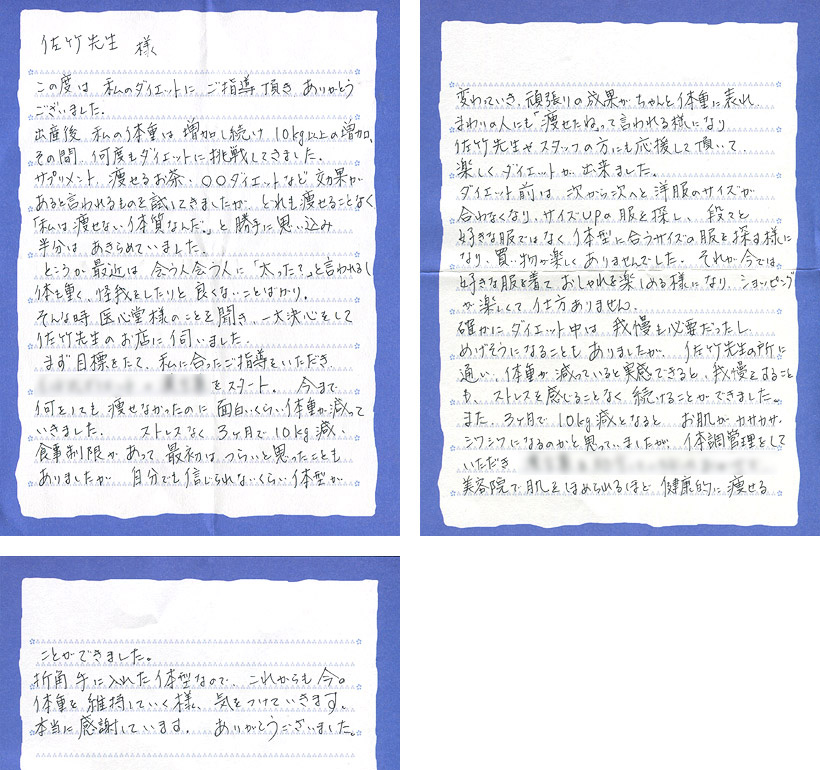 佐竹先生 様
この度は、私のダイエットに ご指導頂き ありがとう
ございました。
出産後、私の体重は増加し続け 10kg以上の増加。
その間、何度もダイエットに挑戦してきました。
サプリメント、痩せるお茶、〇〇ダイエットなど 効果が
あると言われるものを試してきましたが どれも痩せることなく
「私は痩せない体質なんだ。」と 勝手に思い込み
半分は あきらめていました。
ところが最近は 会う人会う人に「太った?」と言われるし
体も重く、怪我をしたりと 良くないことばかり。
そんな時 医心堂様のことを聞き、一大決心をして
佐竹先生のお店に伺いました。
まず目標をたて、私に合ったご指導をいただき
をスタート。 今まで
何をしても 痩せなかったのに 面白いくらい体重が減って
いきました。 ストレスなく 3ヶ月で10kg減、
食事制限があって、最初は つらいと思ったことも
ありましたが 自分でも信じられないくらい 体型が
変わっていき、頑張りの成果がちゃんと体重に表れ
まわりの人にも「痩せたね。」って言われる様になり
佐竹先生やスタッフの方にも応援して頂いて、
楽しくダイエットが出来ました。
ダイエット前は 次から次へと洋服のサイズが
合わなくなり、サイズUPの服を探し、 段々と
好きな服ではなく 体型に合うサイズの服を探す様に
なり、買い物が楽しくありませんでした。それが今では、
好きな服を着て おしゃれを楽しめる様になり ショッピング
が楽しくて仕方ありません。
確かにダイエット中は、我慢も必要だったし
めげそうになることも ありましたが、佐竹先生の所に
通い、体重が減っていると実感できると、我慢をすること
も、ストレスを感じることなく 続けることができました。
また、3ヶ月で10kg減となると お肌がカサカサ、
シワシワになるのかと思っていましたが、体調管理をして
いただき
美容院で肌をほめられるほど 健康的に痩せる
ことができました。
折角手に入れた体型なので、これからも 今の
体重を維持していく様、気をつけていきます。
本当に感謝しています。 ありがとうございました。